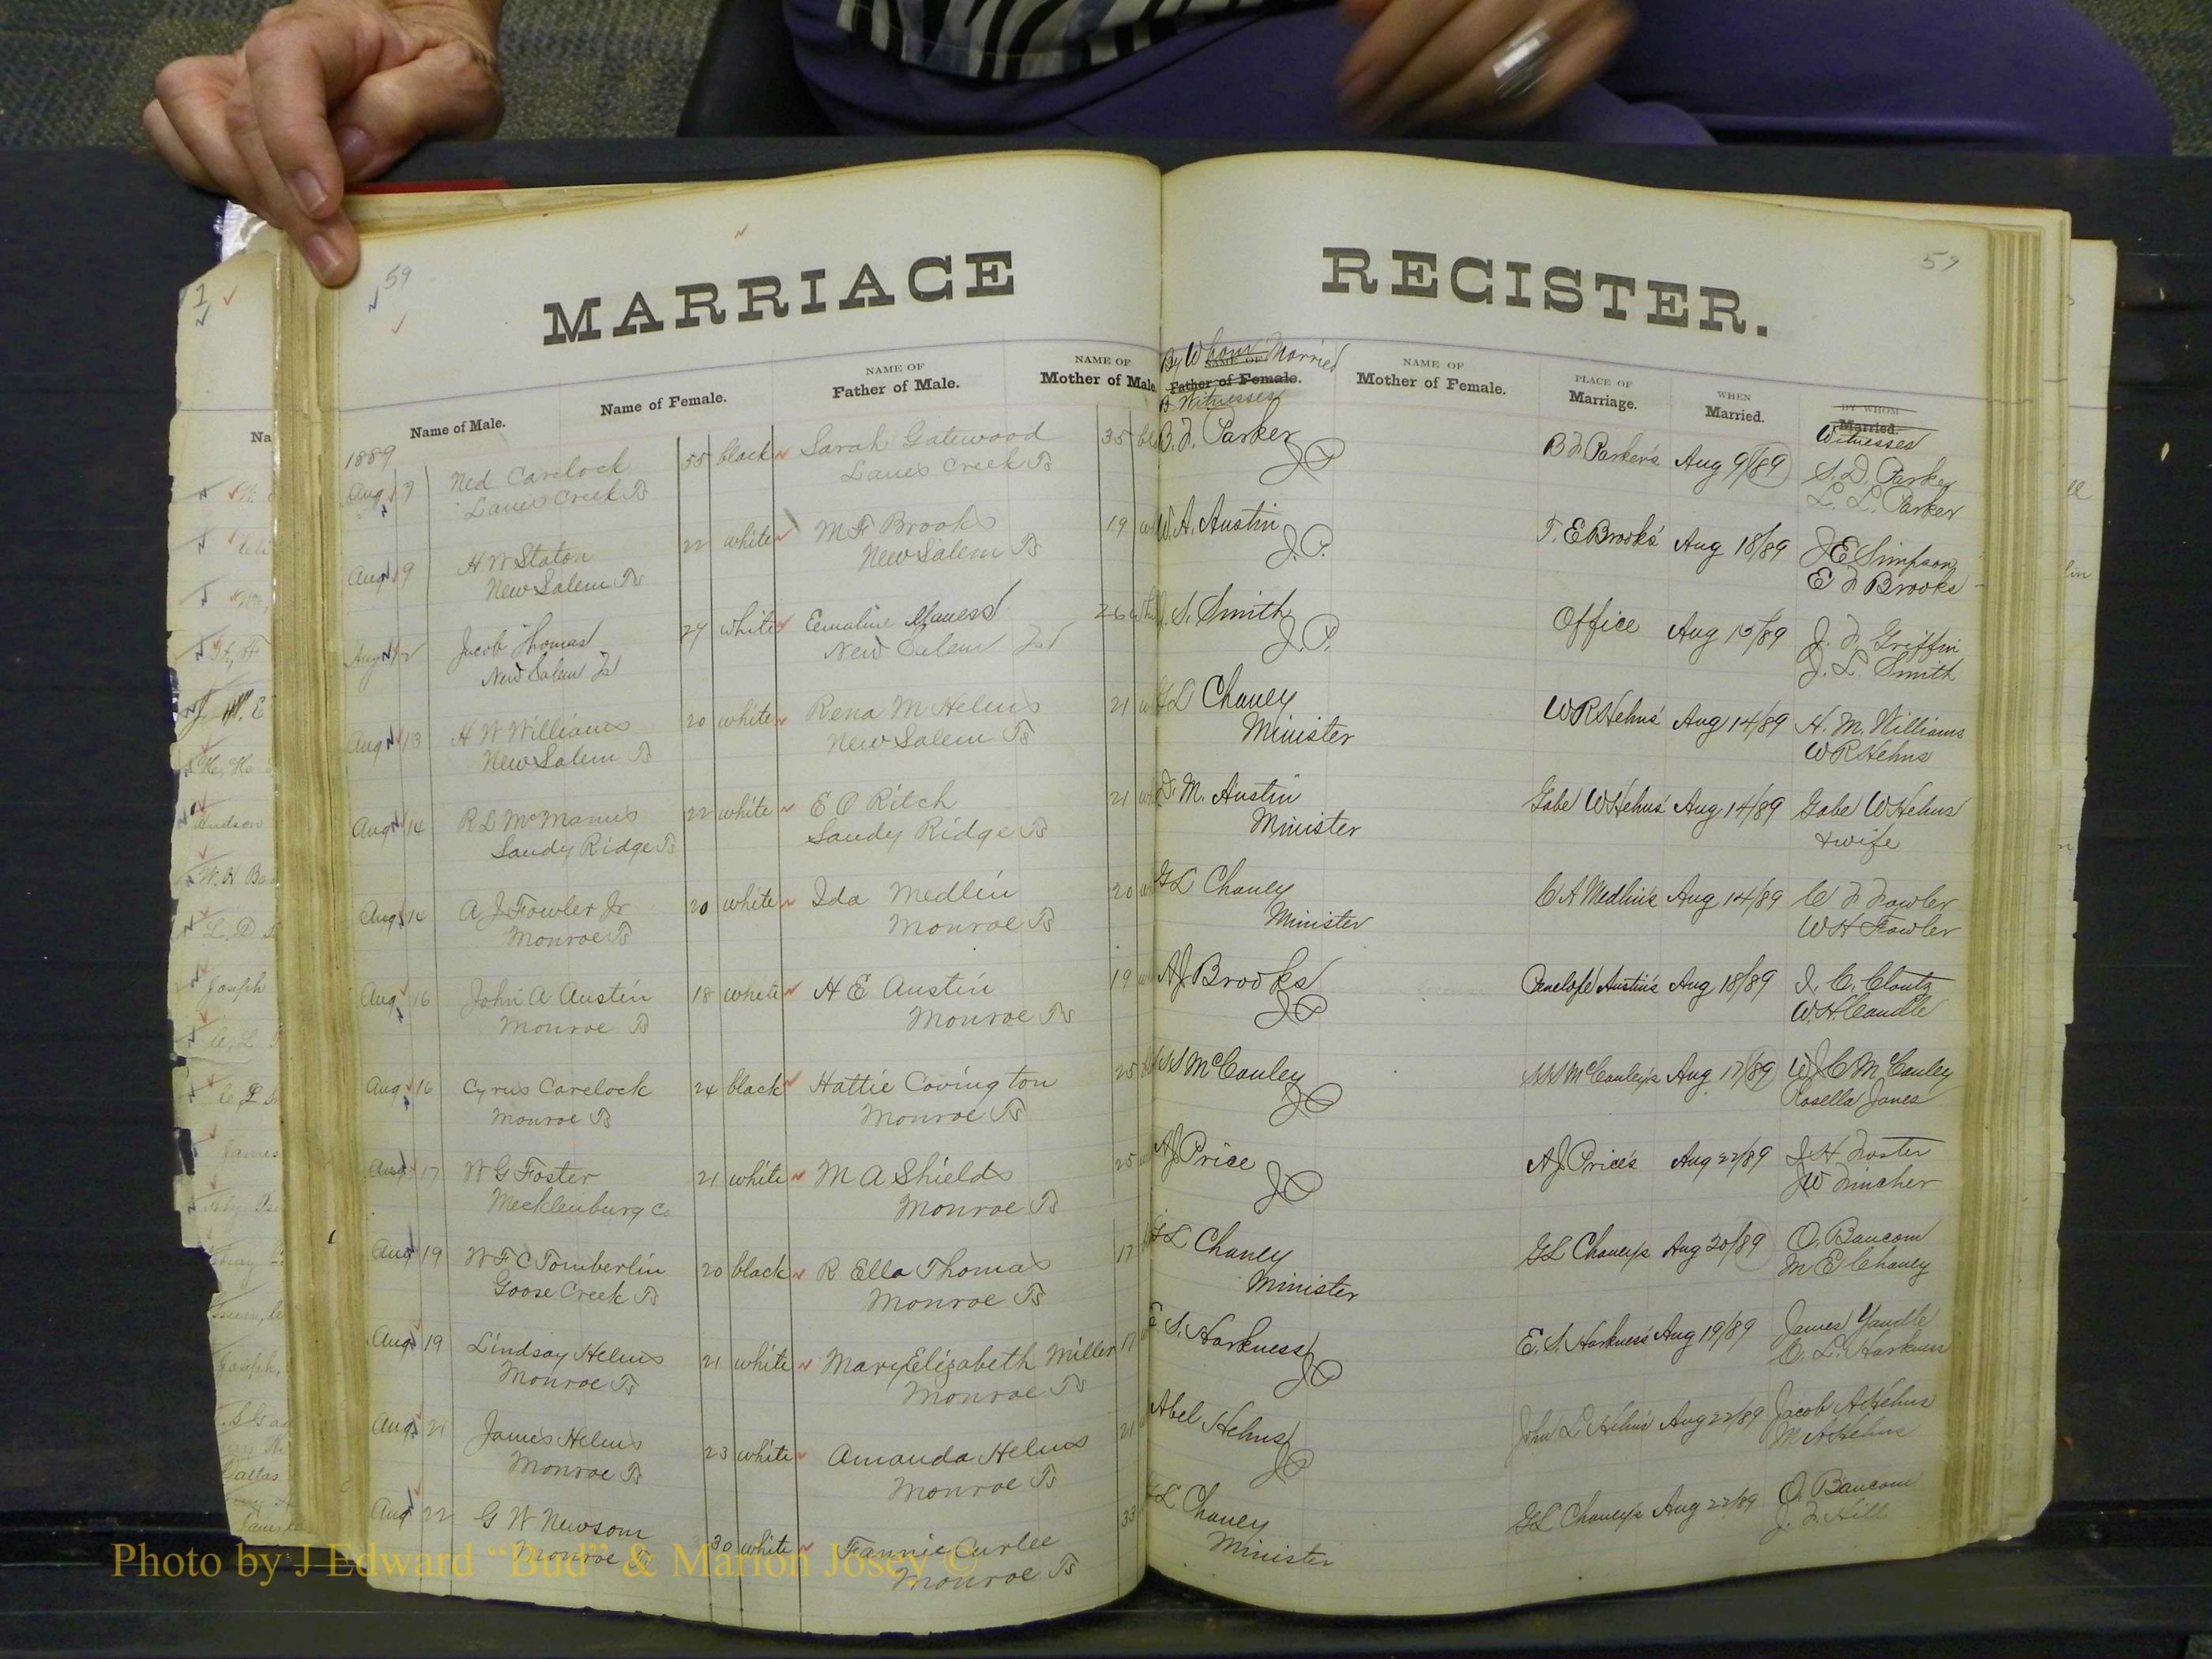 59
59
MARRIAGE REGISTER.
Name of Male.
Name of Female.
NAME OF
Father of Male.
NAME OF
Mother of Male.
By Whom Married
NAME OF
Father of Female.
& Witnesses
NAME OF
Mother of Female.
PLACE OF
Marriage.
WHEN
Married.
BY WHOM
Married.
Witnesses
1889
Aug 9 Ned Carelock 55 black Sarah Gatewood 35 B. F. Parker B F Parker's Aug 9/89 S. D. Parker
Lanes Creek Ts Lanes Creek Ts JP L. L. Parker
Aug 9 H W Staton 22 white M F Brooks 19 W. A. Austin T. E Brooks' Aug 18/89 J E Simpson
New Salem Ts New Salem Ts J.P. E F Brooks
Aug 12 Jacob Thomas 27 white Emaline Maness 26 S. Smith Office Aug 15/89 J. F. Griffin
New Salem Ts New Salem Ts J.P. J. L. Smith
Aug 13 H W Williams 20 white Rena M Helms 21 G L Chaney W R Helms' Aug 14/89 H. M. Williams
New Salem Ts New Salem Ts Minister W R Helms
Aug 14 R L McManus 22 white E O Ritch 21 D. M. Austin Gabe W Helms' Aug 14/89 Gabe W Helms
Sandy Ridge Ts Sandy Ridge Ts Minister & wife
Aug 14 A J Fowler Jr 20 white Ida Medlin 20 G L Chaney C A Medlin's Aug 14/89 C F Fowler
Monroe Ts Monroe Ts Minister W H Fowler
Aug 16 John A Austin 18 white H E Austin 19 A J Brooks Penelope Austin's Aug 18/89 I. C. Clontz
Monroe Ts Monroe Ts JP W. H. Caudle
Aug 16 Cyrus Carelock 24 black Hattie Covington 25 S S S McCauley S S S McCauley's Aug 17/89 W J C McCauley
Monroe Ts Monroe Ts JP Rosella Jones
Aug 17 W G Foster 21 white M A Shields 25 A J Price A J Price's Aug 22/89 J H Foster
Mecklenburg Co Monroe Ts JP J W Fincher
Aug 19 W F C Tomberlin 20 black R Ella Thomas 17 G L Chaney G L Chaney's Aug 20/89 O. Baucom
Goose Creek Ts Monroe Ts Minister M E Chaney
Aug 19 Lindsay Helms 21 white Mary Elizabeth Miller 17 E. S. Harkness E. S. Harkness' Aug 19/89 James Yandle
Monroe Ts Monroe Ts JP C. L. Harkness
Aug 21 James Helms 23 white Amanda Helms 21 Abel Helms John L Helms' Aug 22/89 Jacob A Helms
Monroe Ts Monroe Ts JP M A Helms
Aug 22 G W Newsom 30 white Fannie Curlee 33 G L Chaney G L Chaney's Aug 22/89 O. Baucom
Monroe Ts Monroe Ts Minister J. F. Hill
Photo by J Edward "Bud" & Marion Josey ©